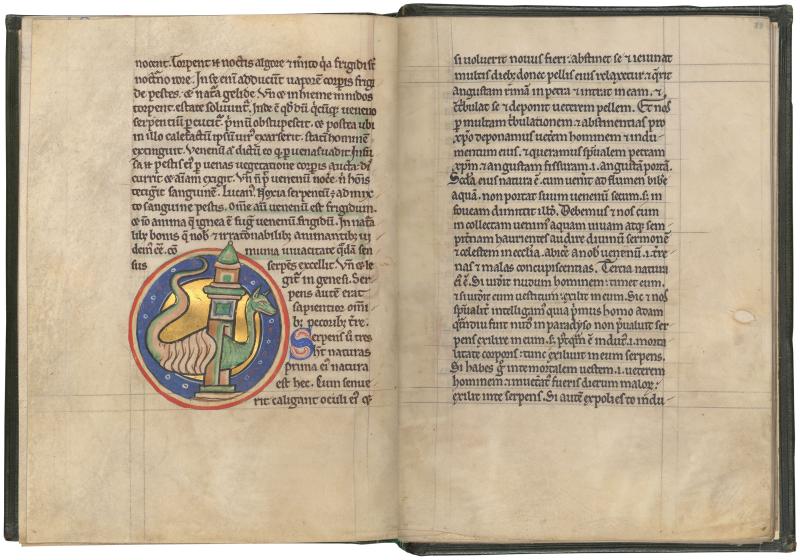 nocent. Torpent & noctis algore & mito qa frigidi st
nocturno rore. In se enī adducunt vaporē corpis frigi
de pestes. & natā gelide. Vn̄ & in hieme in nodos
torpent. estate soluunt. Inde ē qd dū qcūq; ueneno
serpentiū pcutit. primū obstupescit. & postea ubi
in illo calefactū ipsum uir exarserit. statī hominē
extinguit. Venenū aū dictū eo qd p uenas uadit. Infu
sa & pestis ei p uenas uegetatione corpis aucta di
currit & aīam exigit. Vn̄ n̄ p venenū noce. n̄ hōis
tetigerit sanguinē. Lucan. Noxia serpentū admix
to sanguine pestis. Om̄e aū uenenū est frigidum.
& iō anima q ignea ē fugit venenū frigidū. In natā
lib; bonis q nob & irrationabilib; animantib; ui
dem & cō muna uiuacitate qdā sen
sus serpēs excellit. Vn̄ & le
git in genesi. Ser
pens autē erat
sapientior om̄i
b; pecorib; tre.
Serpens ū tres
ht naturas
prima ei natura
est hec. Cum senue
rit caligant oculi ei & q
si voluerit nouus fieri: abstinet se & ieiunat
multis dieb; donec pellis eius relaxetur. & qrit
angustam rimā in petra & intrat in eam. &
ctribulat se & deponit ueterem pellem. Et nos
p multam tribulationem & abstinentias pro
xpo deponamus ueterē hominem & indu
mentum eius. & queramus spiualem petram
xpm. & angustam fissuram .i. angustā portā.
Scda eius natura ē. cum venit ad flumen bibe
aquā. non portat suum uenenū secum. s; in
foueam dimittit illd. Debemus & nos cum
in collectam venimus aquam uiuam atq; sem
pitnam haurientes audire diuinū sermonē
& celestem in ecclia. abice a nob uenenū .i. tre
nas & malas concupiscentias. Tertia natura
ei ē. Si uidit nudum hominem: timet eum.
& si uidit eum uestitum: exilit in eum. Sic & nos
spiualit intelligamus quia primus homo adam
qmdiu fuit nudus in paradyso non pualuit ser
pens exilire in eum. s; postqm ē indutus .i. morta
litate corporis: tunc exiliuit in eum serpens.
Si habes g in te mortalem uestem .i. ueterem
hominem & inueterat fueris dierum malor:
exilit in te serpens. Si autē expolies te indu